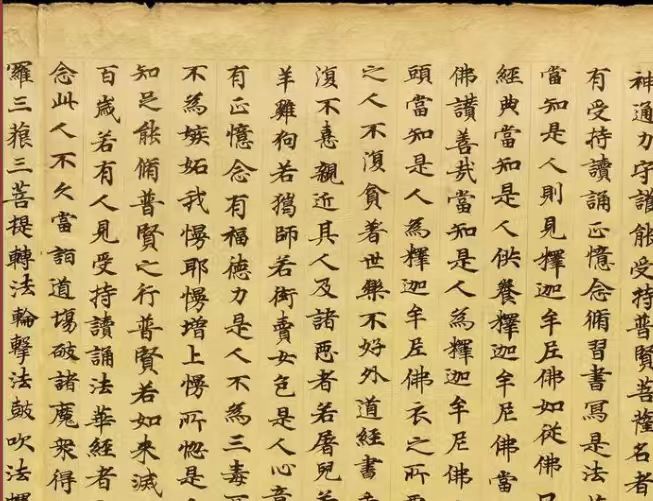 神通力守護能受持普賢菩薩名者
有受持讀誦正憶念脩習書寫是法
當知是人則見釋迦牟尼佛如從佛口
經典當知是人供養釋迦牟尼佛當
佛讚善哉當知是人為釋迦牟尼佛
頭當知是人為釋迦牟尼佛衣之所
之人不復貪著世樂不好外道經書
復不憙親近其人及諸惡者若屠兒若
羊雞狗若獦師若衒賣女色是人心意
有正憶念有福德力是人不為三毒
不為嫉妬我慢耶慢增上慢所惚是人
知足能脩普賢之行普賢若如来滅
百歲若有人見受持讀誦法華經者
念此人不久當詣道場破諸魔衆得
羅三藐三菩提轉法輪擊法鼓吹法螺